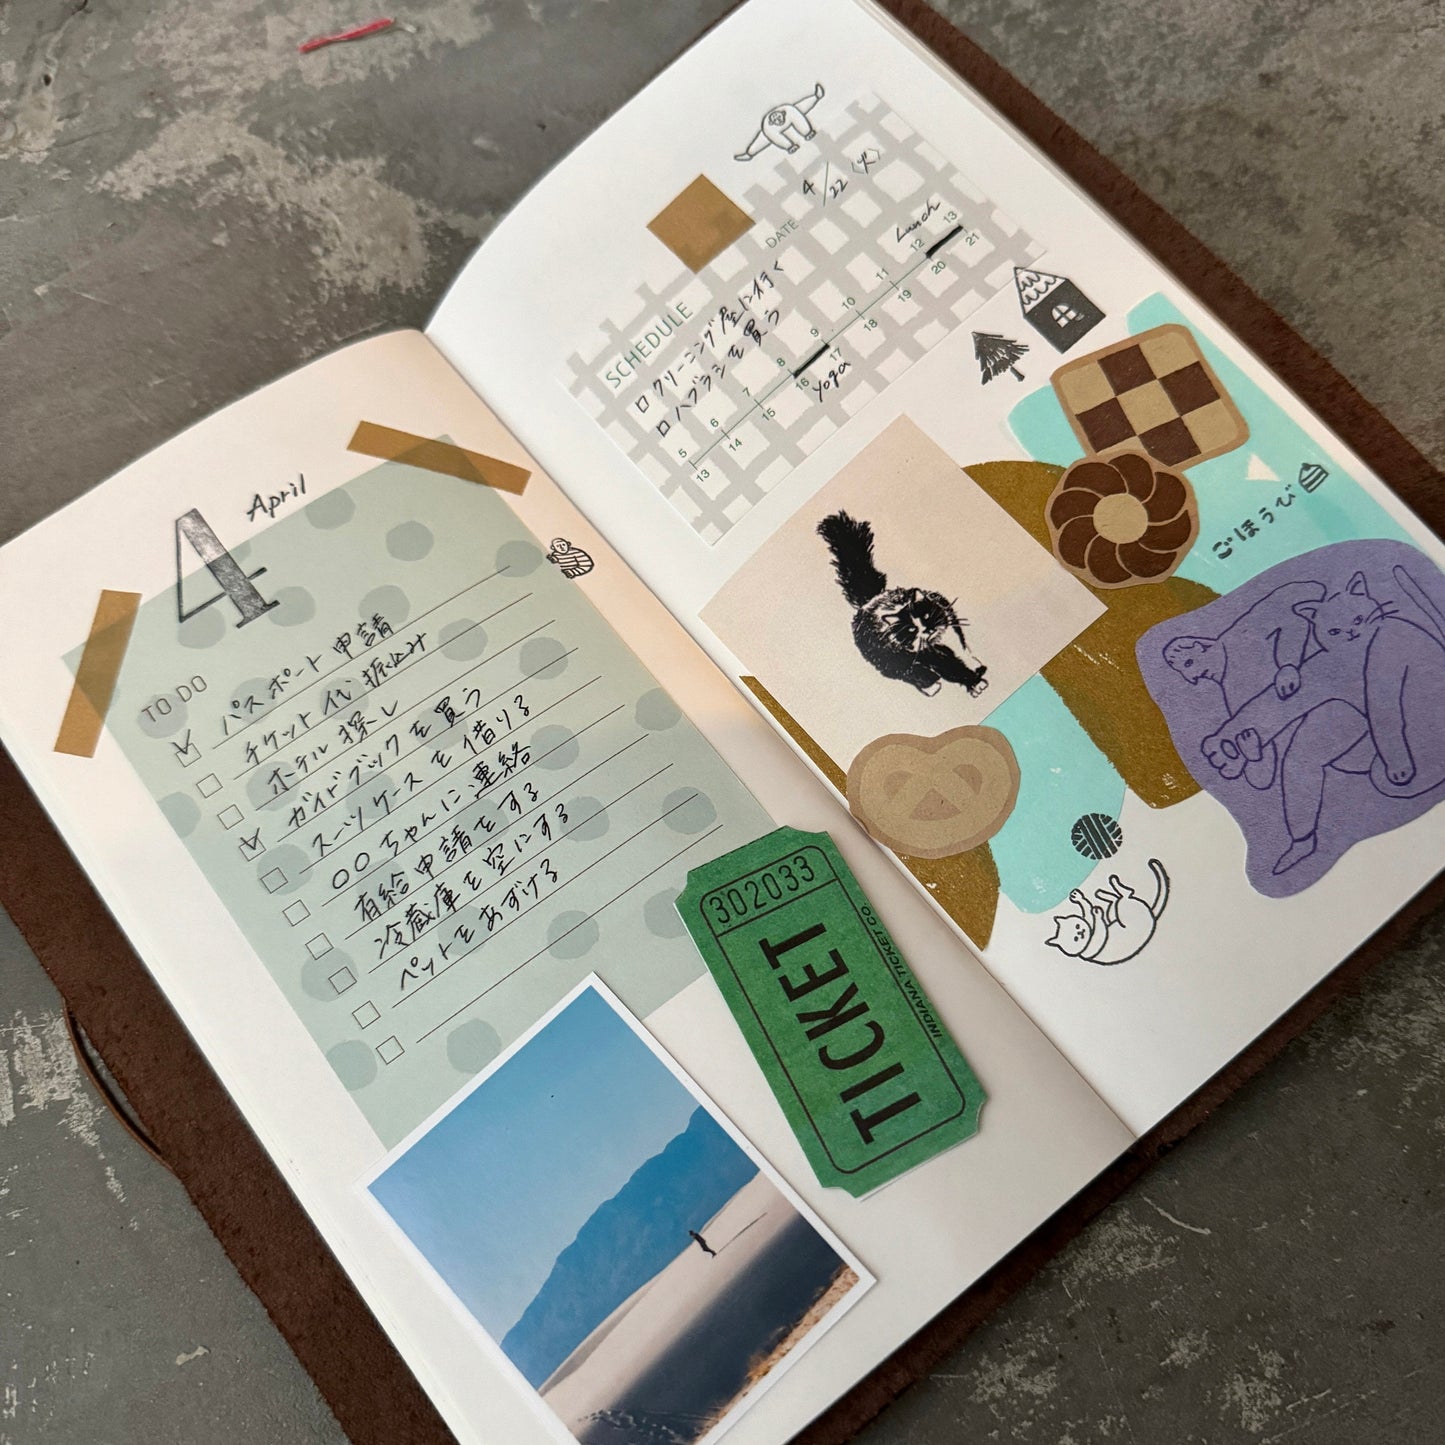 4
April
TO DO
パスポート申請
チケット代振込み
ホテル探し
ガイドブックを買う
スーツケースを借りる
○○ちゃんに連絡
有給申請をする
冷蔵庫を空にする
ペットをあずける
302033
TICKET
INDIANA TICKET CO.
SCHEDULE
DATE
4/22(火)
クリーニング屋に行く
ハブラシを買う
Lunch
5 6 7 8 9 10 11 12 13
13 14 15 16 17 18 19 20 21
yoga
ごほうび